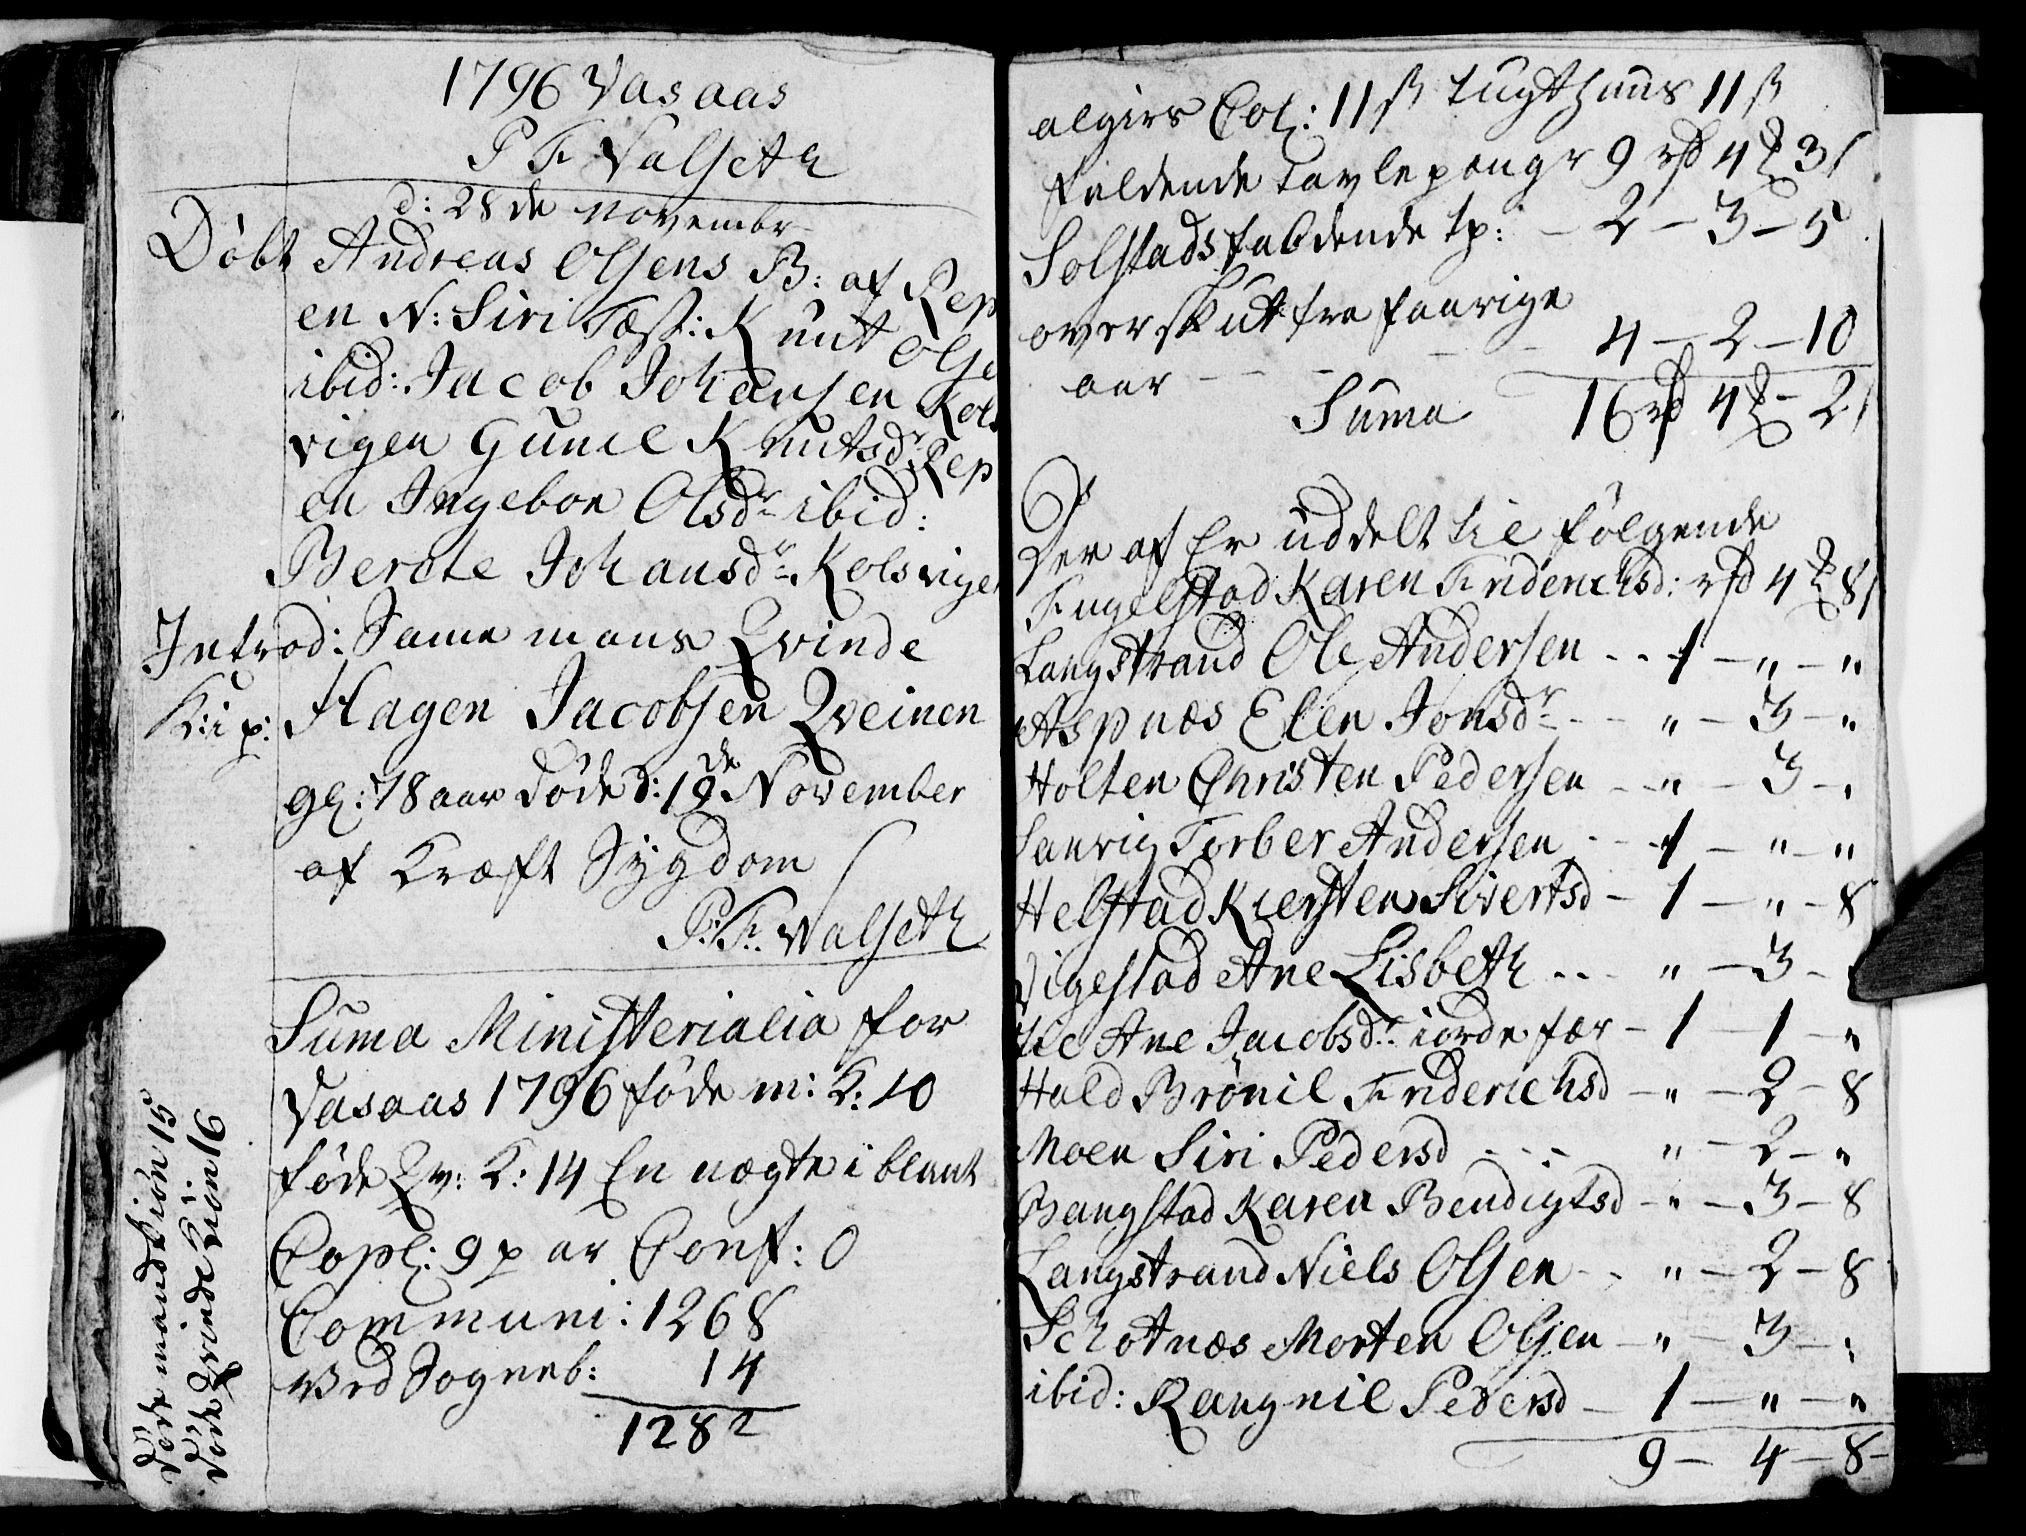 1796 Vasaas
P F Valseth
d: 28de Novembr
Døbt Andreas Olsens B: af Rep
en N: Siri Test: Knut Olse
ibid: Jacob Johansen Kols
vigen Gunil Knutsdr Rep
en Ingebor Olsdr ibid:
Berete Johansdr Kolsvigen
Introd: Same mans Qvinde
K: i p: Hagen Jacobsen Qveinen
gl: 78 aar Døde d: 19de November
af Kræft Sygdom
P: F: Valseth
Suma Ministerialia for
Vasaas 1796 føde m: K: 10
føde Qv: K: 14 En uægte i blant
Copl: 9 par Conf: 0
Communi: 1268
ved Sogneb: 14
1282
Døde mands Kiøn 15
Døde Qvinde Kiøn 16
algirs Col: 11 ß Tugthuus 11 ß
faldende Tavlepenge 9 rd 4 3
Solstads faldende tp: - 2 - 3 - 5
overskut fra faarige
aar - - - 4 - 2 - 10
Suma 16 rd 4 - 2
Der af Er uddelt til følgende
Engelstad Karen Friderichsd: rd 4 8
Langstrand Ole Andersen - - 1 - " - "
Aspnæs Elen Jonsdr - - " - 3 - "
Holten Christen Pedersen - " - 3 -
Sanvig Torber Andersen - - 1 - " - "
Helstad Kiersten Sivertsd - 1 - " - 8
Vigestad Ane Lisbeth - - " - 3 -
til Ane Jacobsdr iorde fær - 1 - 1 - "
Hald Brønil Friderichsd - " - 2 - 8
Moen Siri Pedersd - - - " - 2 - "
Bangstad Karen Bendigtsd - " - 3 - 8
Langstrand Niels Olsen - - " - 2 - 8
Schotnæs Morten Olsen - " - 3 -
ibid: Rangnil Pedersd - 1 - " - "
9 - 4 - 8 -